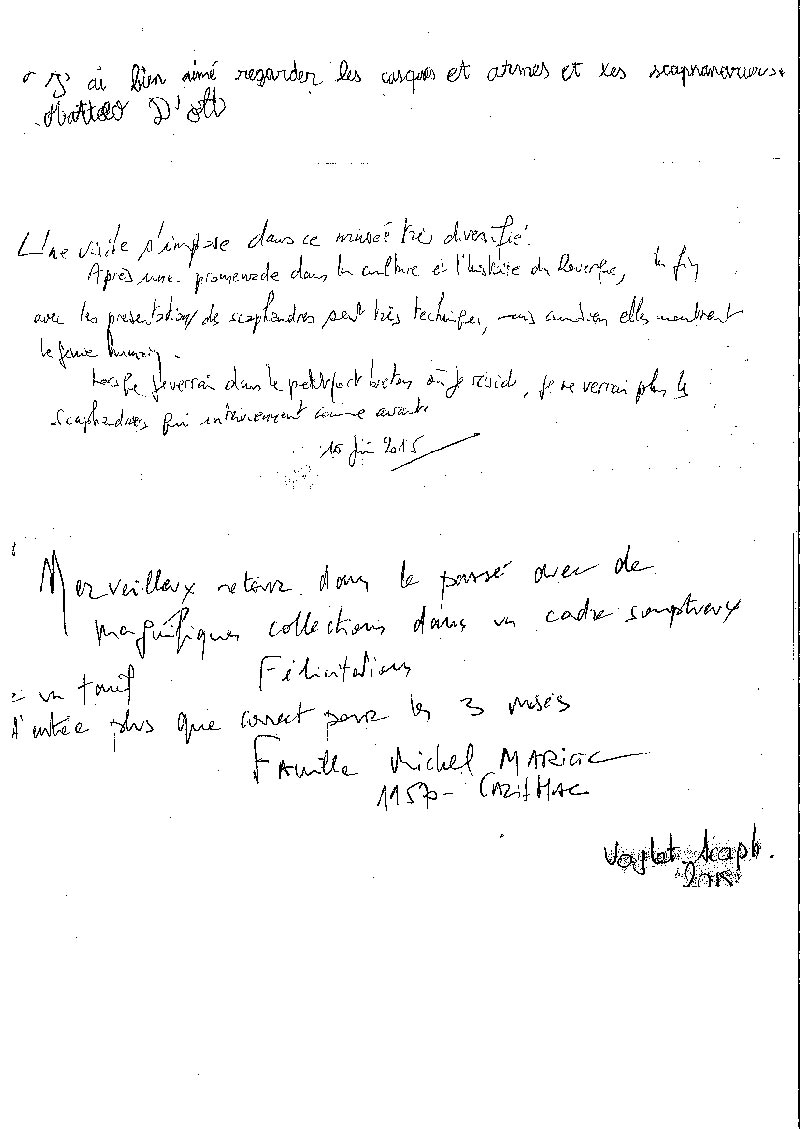 J'ai bien aimé regarder les casques et armes et les scaphandriers.
Matteo D'
Une visite s'impose dans ce musée très diversifié.
Après une promenade dans la culture et l'histoire du Rouergue, la fin
avec les présentations de scaphandres sont très techniques, mais combien elles montrent
le génie humain.
Lorsque je verrai dans le petit port breton où je réside, je ne verrai plus les
scaphandres qui interviennent comme avant.
10 Juin 2015
Merveilleux retour dans le passé avec de
magnifiques collections dans un cadre somptueux
Félicitations
un tarif
d'entrée plus que correct pour les 3 musés
Famille Michel MARIGC
11570 - CAZILHAC
Scaph.
2015